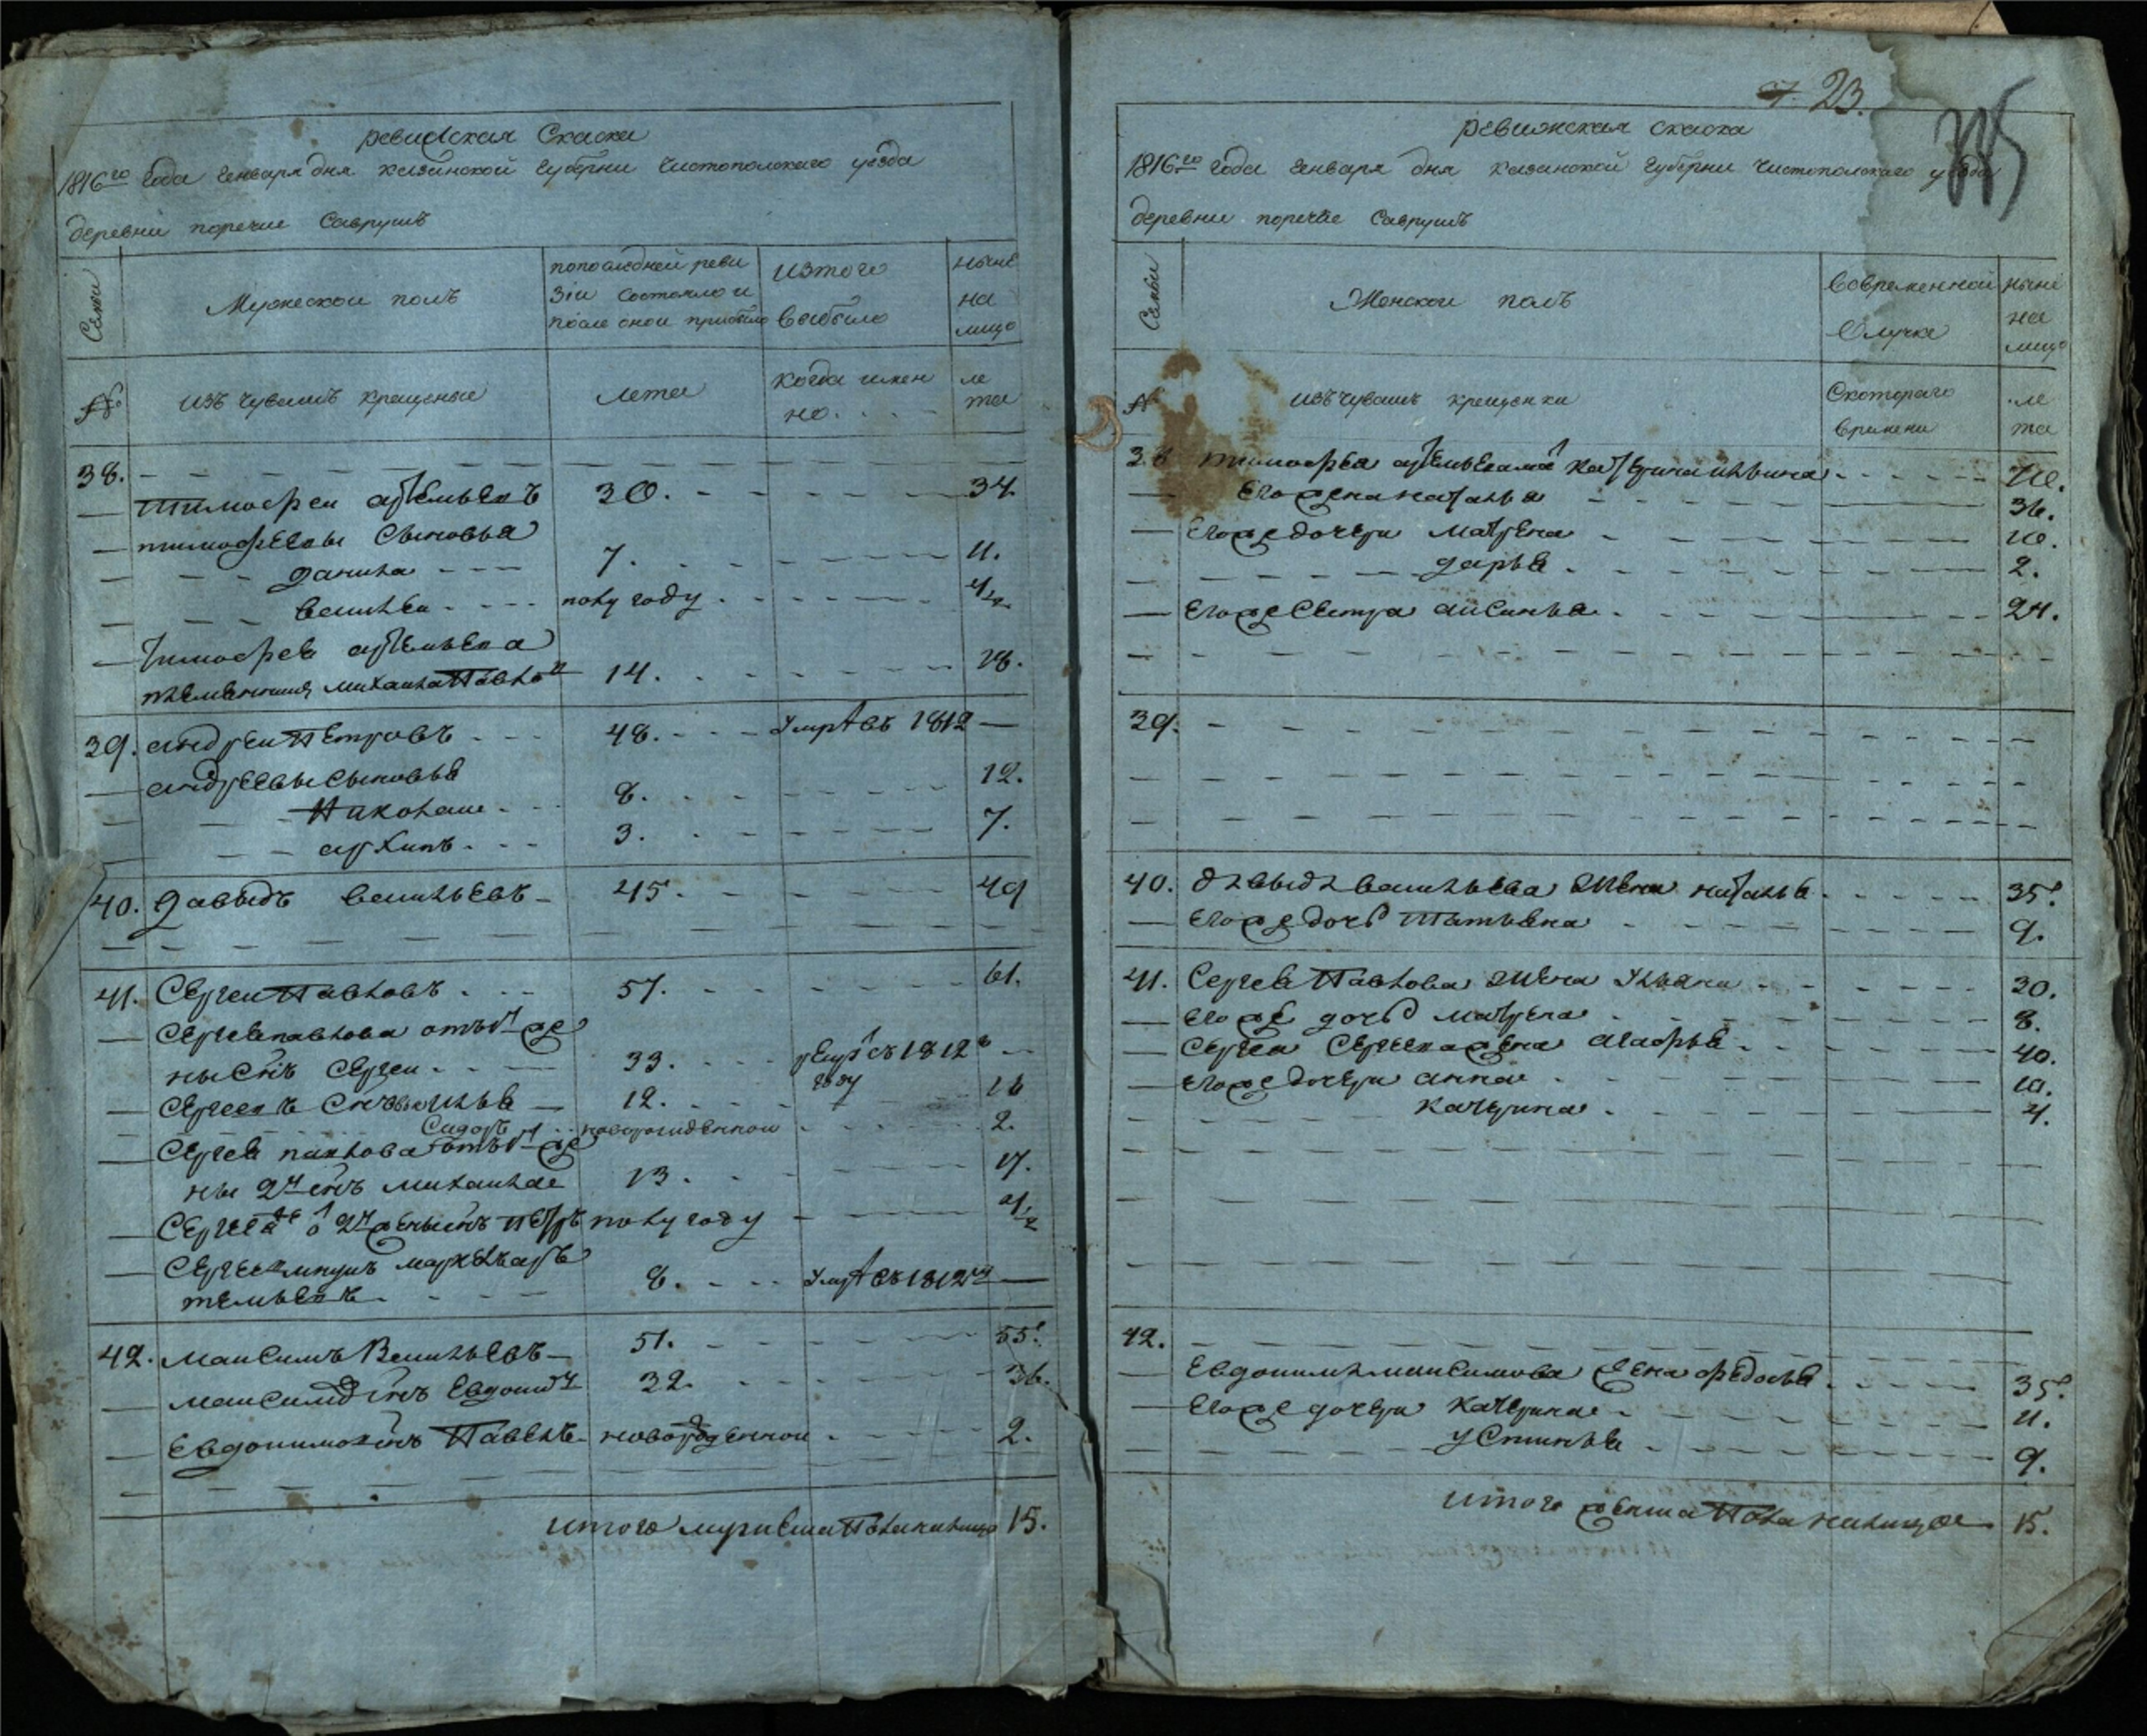 ревиская Скаска
1816го Года Генваря дня Казанской Губерни Чистопольскаго уезда
деревни поречие Саврушъ
Семьи
Мужеской полъ
попоследней реви
зіи Состояло и
после оной прибыло
изтого
выбыло
ныне
на
лицо
№
изъ Чувашъ крещеные
лета
когда имен
но. . . .
ле
та
38.
Тимофеи артемьевъ 30. 34.
тимофеевы Сыновья
данила 7. 11.
василеи полу году 4½
Тимофея артемьева
племянникъ михаила Павло 14. 18.
39. андреи Петровъ 48. умре въ 1812
андреевы сыновья
Николаи 8. 12.
архипъ 3. 7.
40. давыдъ васильевъ 45. 49
41. Сергеи Павловъ 57. 61.
Сергея павлова отъ 1й же
ны Снъ Сергеи 33. рекрут съ 1812
году
Сергеевъ Снъ илья 12. 16
Сидоръ новорожденнои 2.
Сергея павлова отъ 2й же
ны 2й снъ михаила 13. 17.
Сергея 2й жены снъ петръ полу году 4½
темьевъ 8. умре въ 1812м
42. максимъ Васильевъ 51. 55.
максимовъ снъ Евдоким 32. 36.
Евдокимовъ снъ Павелъ новорожденнои 2.
итого мужеска Пола налицо 15.
7. 23.
375
ревижская скаска
1816го года Генваря дня Казанской Губерни Чистопольскаго уезда
деревни поречие Саврушъ
Семьи
Женской полъ
Вовременной
Отлучке
ныне
на
лицо
№
изъ чувашъ крещенки
Скотораго
времени
ле
та
38 тимофея артемьева мать Катерина ильина 70.
Его жена наталья 36.
Его же дочери матрена 10.
дарья 2.
Его же Сестра аксинья 24.
39.
40. давыда васильева жена наталья 35.
Его же дочь татьяна 9.
41. Сергея Павлова жена ульяна 30.
его же дочь матрена 8.
Сергея Сергеева жена агафья 40.
Его же дочери анна 10.
катерина 4.
42.
Евдокима максимова жена федосья 35.
Его же дочери катерина 11.
устинья 9.
итого женска Пола налицо 15.